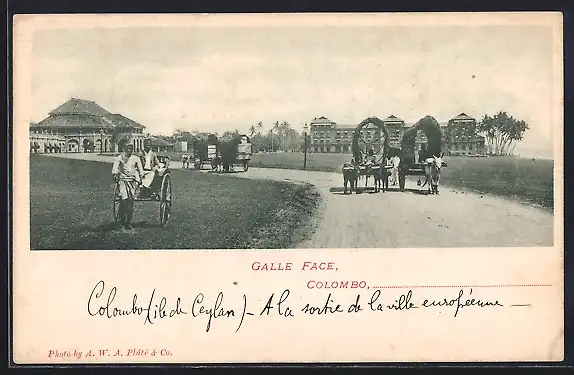 GALLE FACE,
COLOMBO,
Colombo (ile de Ceylan) - A la sortie de la ville européenne -
Photo by A. W. A. Plâté & Co.